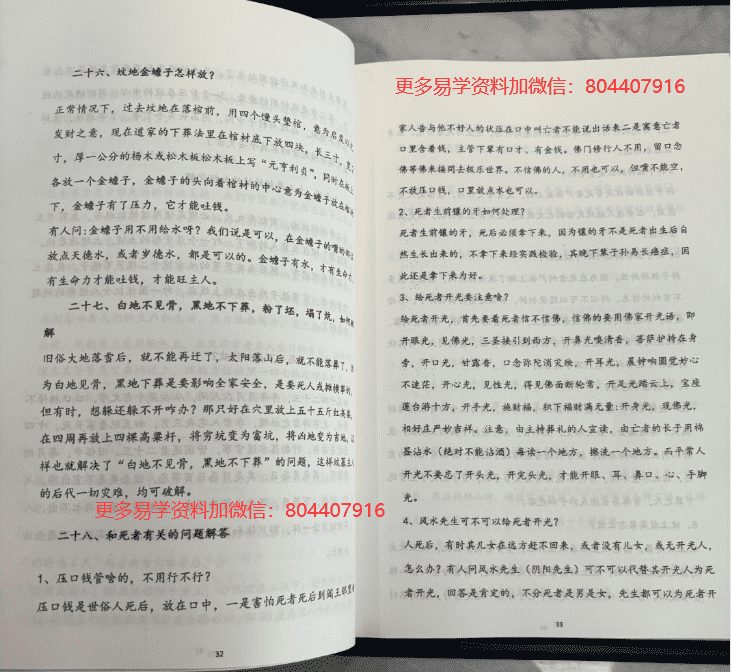 二十六、坟地金蟾子怎样放?
正常情况下，过去坟地在落棺前，用四个馒头垫棺，意为后辈以
发财之意，现在道家的下葬法里在棺材底下放四块，长三寸，宽
寸，厚一公分的杨木或松木板松木板上写“元亨利贞”，同时在板上
各放一个金蟾子，金蟾子的头向着棺材的中心意为金蟾子放在棺材
下，金蟾有了压力，它才能吐钱。
有人问:金蟾子用不用给水呀? 我们说是可以，在金蟾子的嘴的
放点天德水，或者岁德水，都是可以的。金蟾子有水，才有生命力
有生命力才能吐钱，才能旺主人。
二十七、白地不见骨，黑地不下葬，粉了坯，塌了炕，如何
解
旧俗大地落雪后，就不能再迁了，太阳落山后，就不能落葬了，因
为白地见骨，黑地下葬是要影响全家安全，是要死人或摊横事的，
但有时，想躲还躲不开咋办? 那只好在穴里放上五十五斤红高粱，
在四周再放上四棵高粱杆，将穷坑变为富坑，将凶地变为吉地，这
样也就解决了“白地不见骨，黑地不下葬”的问题，这样坟墓主人
的后代一切灾难，均可破解。
更多易学资料加微信：804407916
二十八、和死者有关的问题解答
1、压口钱管啥的，不用行不行?
压口钱是世俗人死后，放在口中，一是害怕死者死后到阎王那里
32
更多易学资料加微信：804407916
家人告与他不好人的状压在口中叫亡者不能说出话来二是寓意亡者
口里含着钱，主管下辈有口才、有金钱。佛门修行人不用，留口念
佛等佛来接同去极乐世界。不信佛的人，不用也可以，但嘴不能空，
不放压口钱，口里放点水也可以。
2、死者生前镶的牙如何处理?
死者生前镶的牙，死后必须拿下来，因为镶的牙不是死者出生后自
然生长出来的，不拿下来经实践检验，其晚下辈子孙易长癌症，因
此还是拿下来为好。
3、给死者开光要注意啥?
给死者开光，首先要看死者信不信佛，信佛的要用佛家开光语，即
开眼光，见佛光，三圣接引到西方，开鼻光嗅清香，菩萨护持在身
旁，开口光，甘露香，口念弥陀消灾殃，开耳光，晨钟响圆觉妙心
不迷茫，开心光，见性光，得见佛面断轮常，开足光踏云上，宝座
莲台游十方，开手光，施财福，积下福财满无量:开身光，现佛光，
相好庄严妙吉祥。注意，由主持葬礼的人宣读，由亡者的长子用棉
签沾水（绝对不能沾酒）每读一个地方，擦洗一个地方。而平常人
开光不要忘了开头光，开完头光，才能开眼、耳、鼻口、心、手脚
光。
4、风水先生可不可以给死者开光?
人死后，有时其儿女在远方赶不回来，或者没有儿女，或无开光人，
怎么办? 有人问风水先生（阴阳先生）可不可以代替其开光人为死
者开光，回答是肯定的，不分死者是男是女，先生都可以为死者开
33